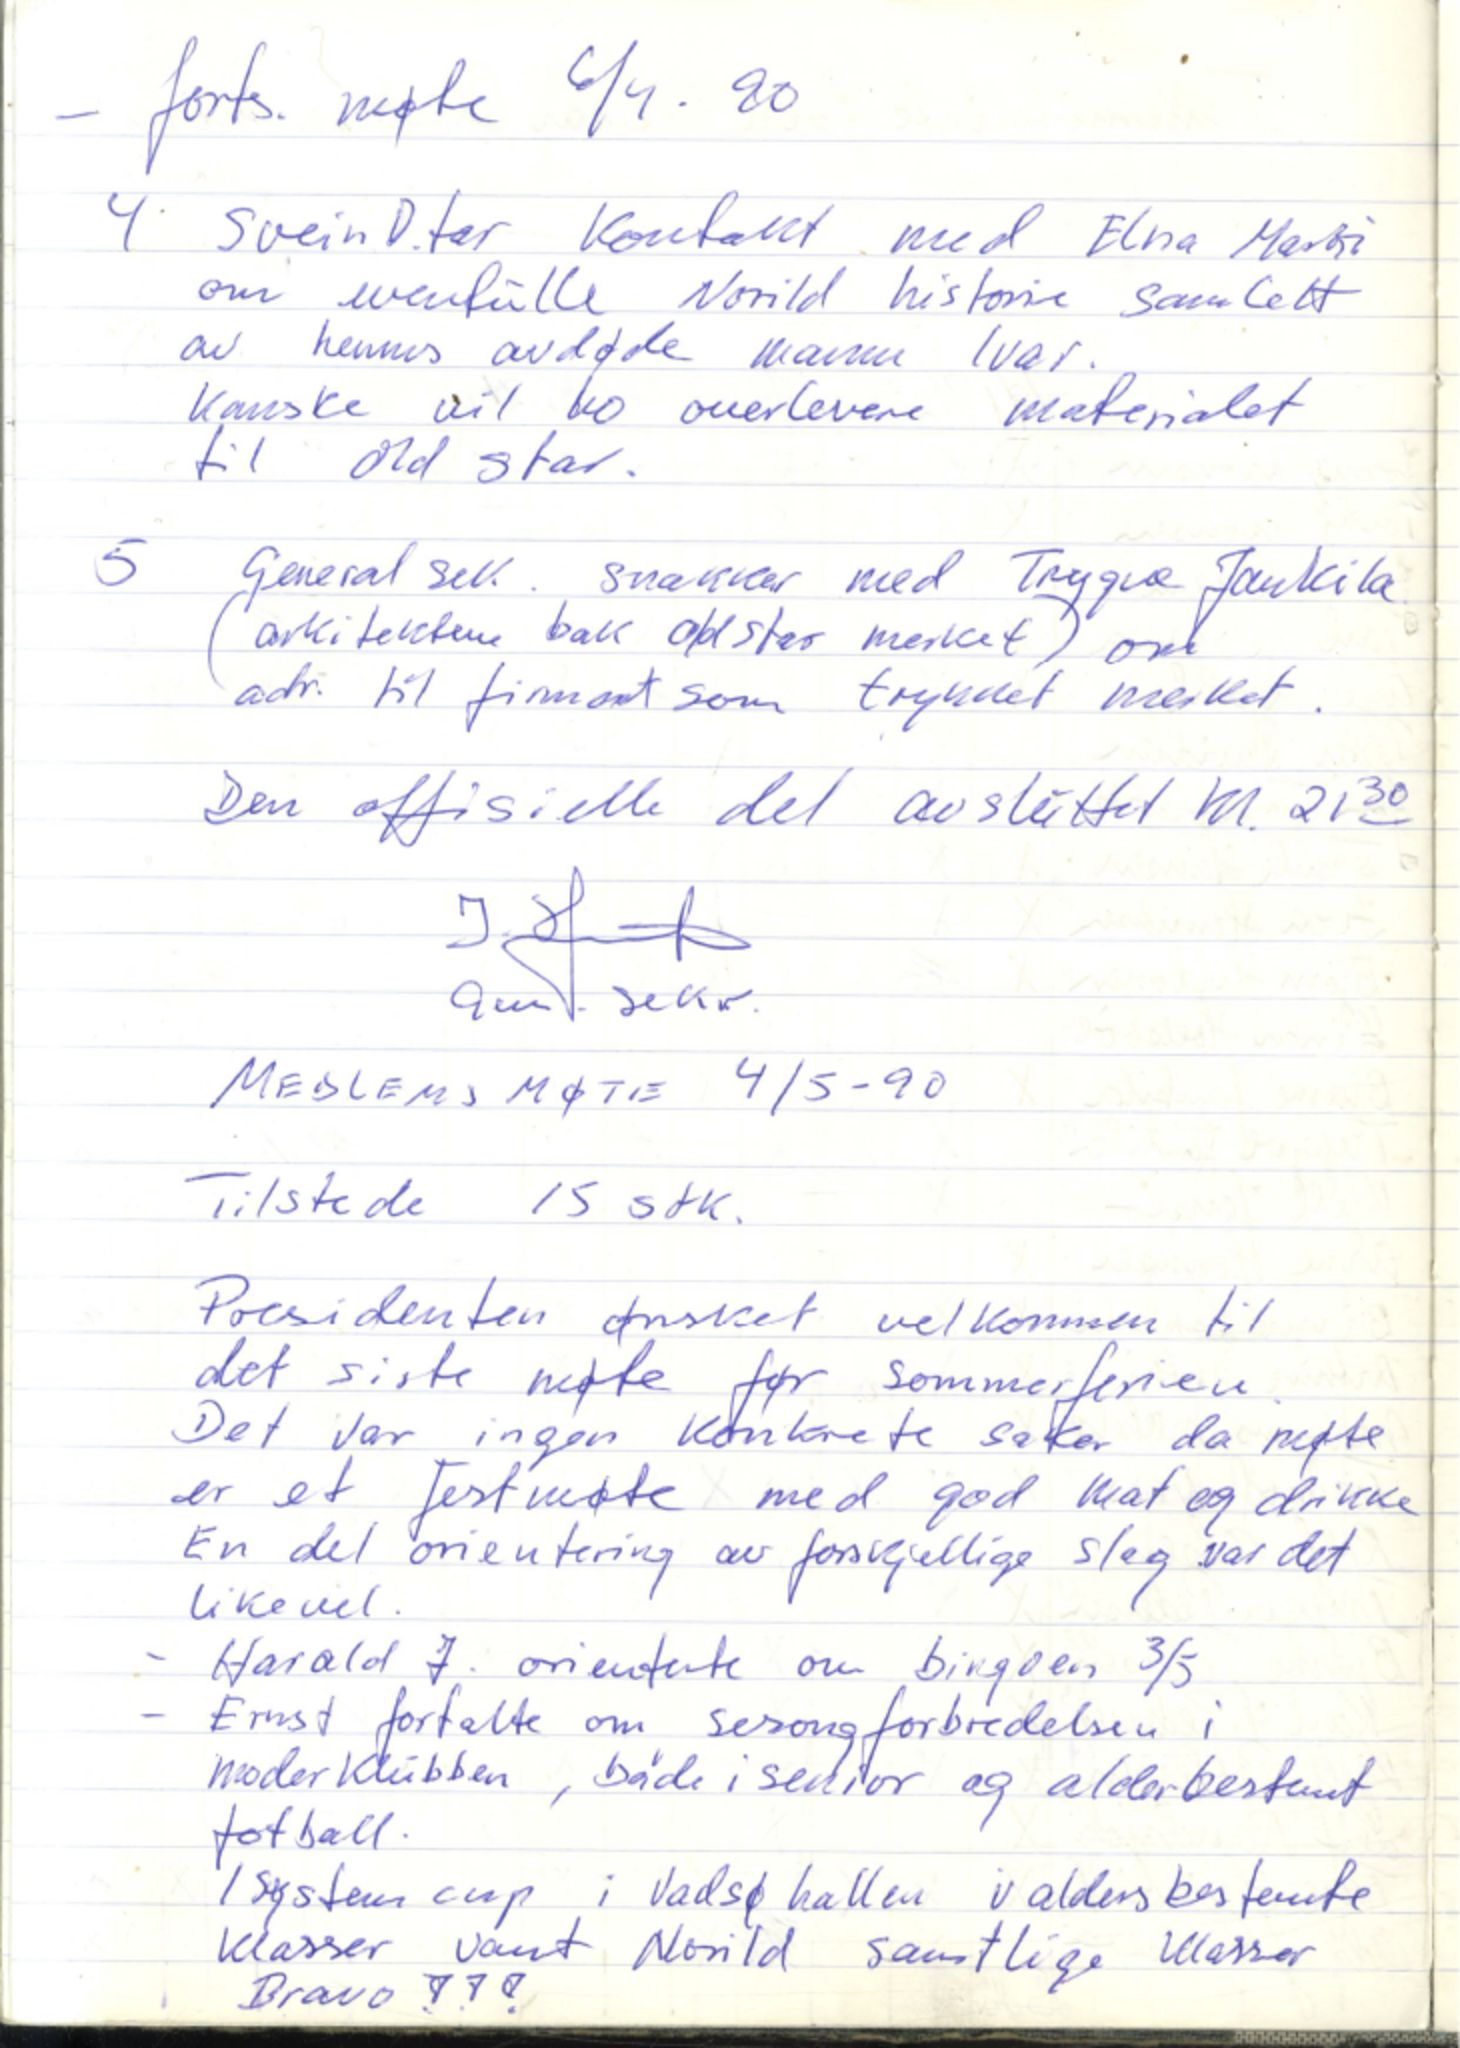 - forts. møte 6/4. 90
4 Svein D. tar kontakt med Elna
om eventuille Norild historie samlett
av hennes avdøde mann Ivar.
Kanske vil ho overlevere materialet
til Old star.
5 General sek. snakker med Trygve Jankila
(arkitektene bak oldstar merket) om
adr. til firmaet som trykket merket.
Den offisielle del avsluttet kl. 21 30
J.
Gen. sekr.
MEDLEMSMØTE 4/5-90
Tilstede 15 stk.
Presidenten ønsket velkommen til
det siste møte før sommerferien.
Det var ingen konkrete saker da møte
er et festmøte med god mat og drikke
En del orientering av forskjellige slag var det
likevel.
- Harald J. orienterte om bingoen 3/5
- Ernst fortalte om sesongforbredelsen i
moderklubben, både i senior og alderbestemt
fotball.
I system cup i Vadsøhallen i aldersbestemte
klasser vant Norild samtlige klasser
Bravo !!!